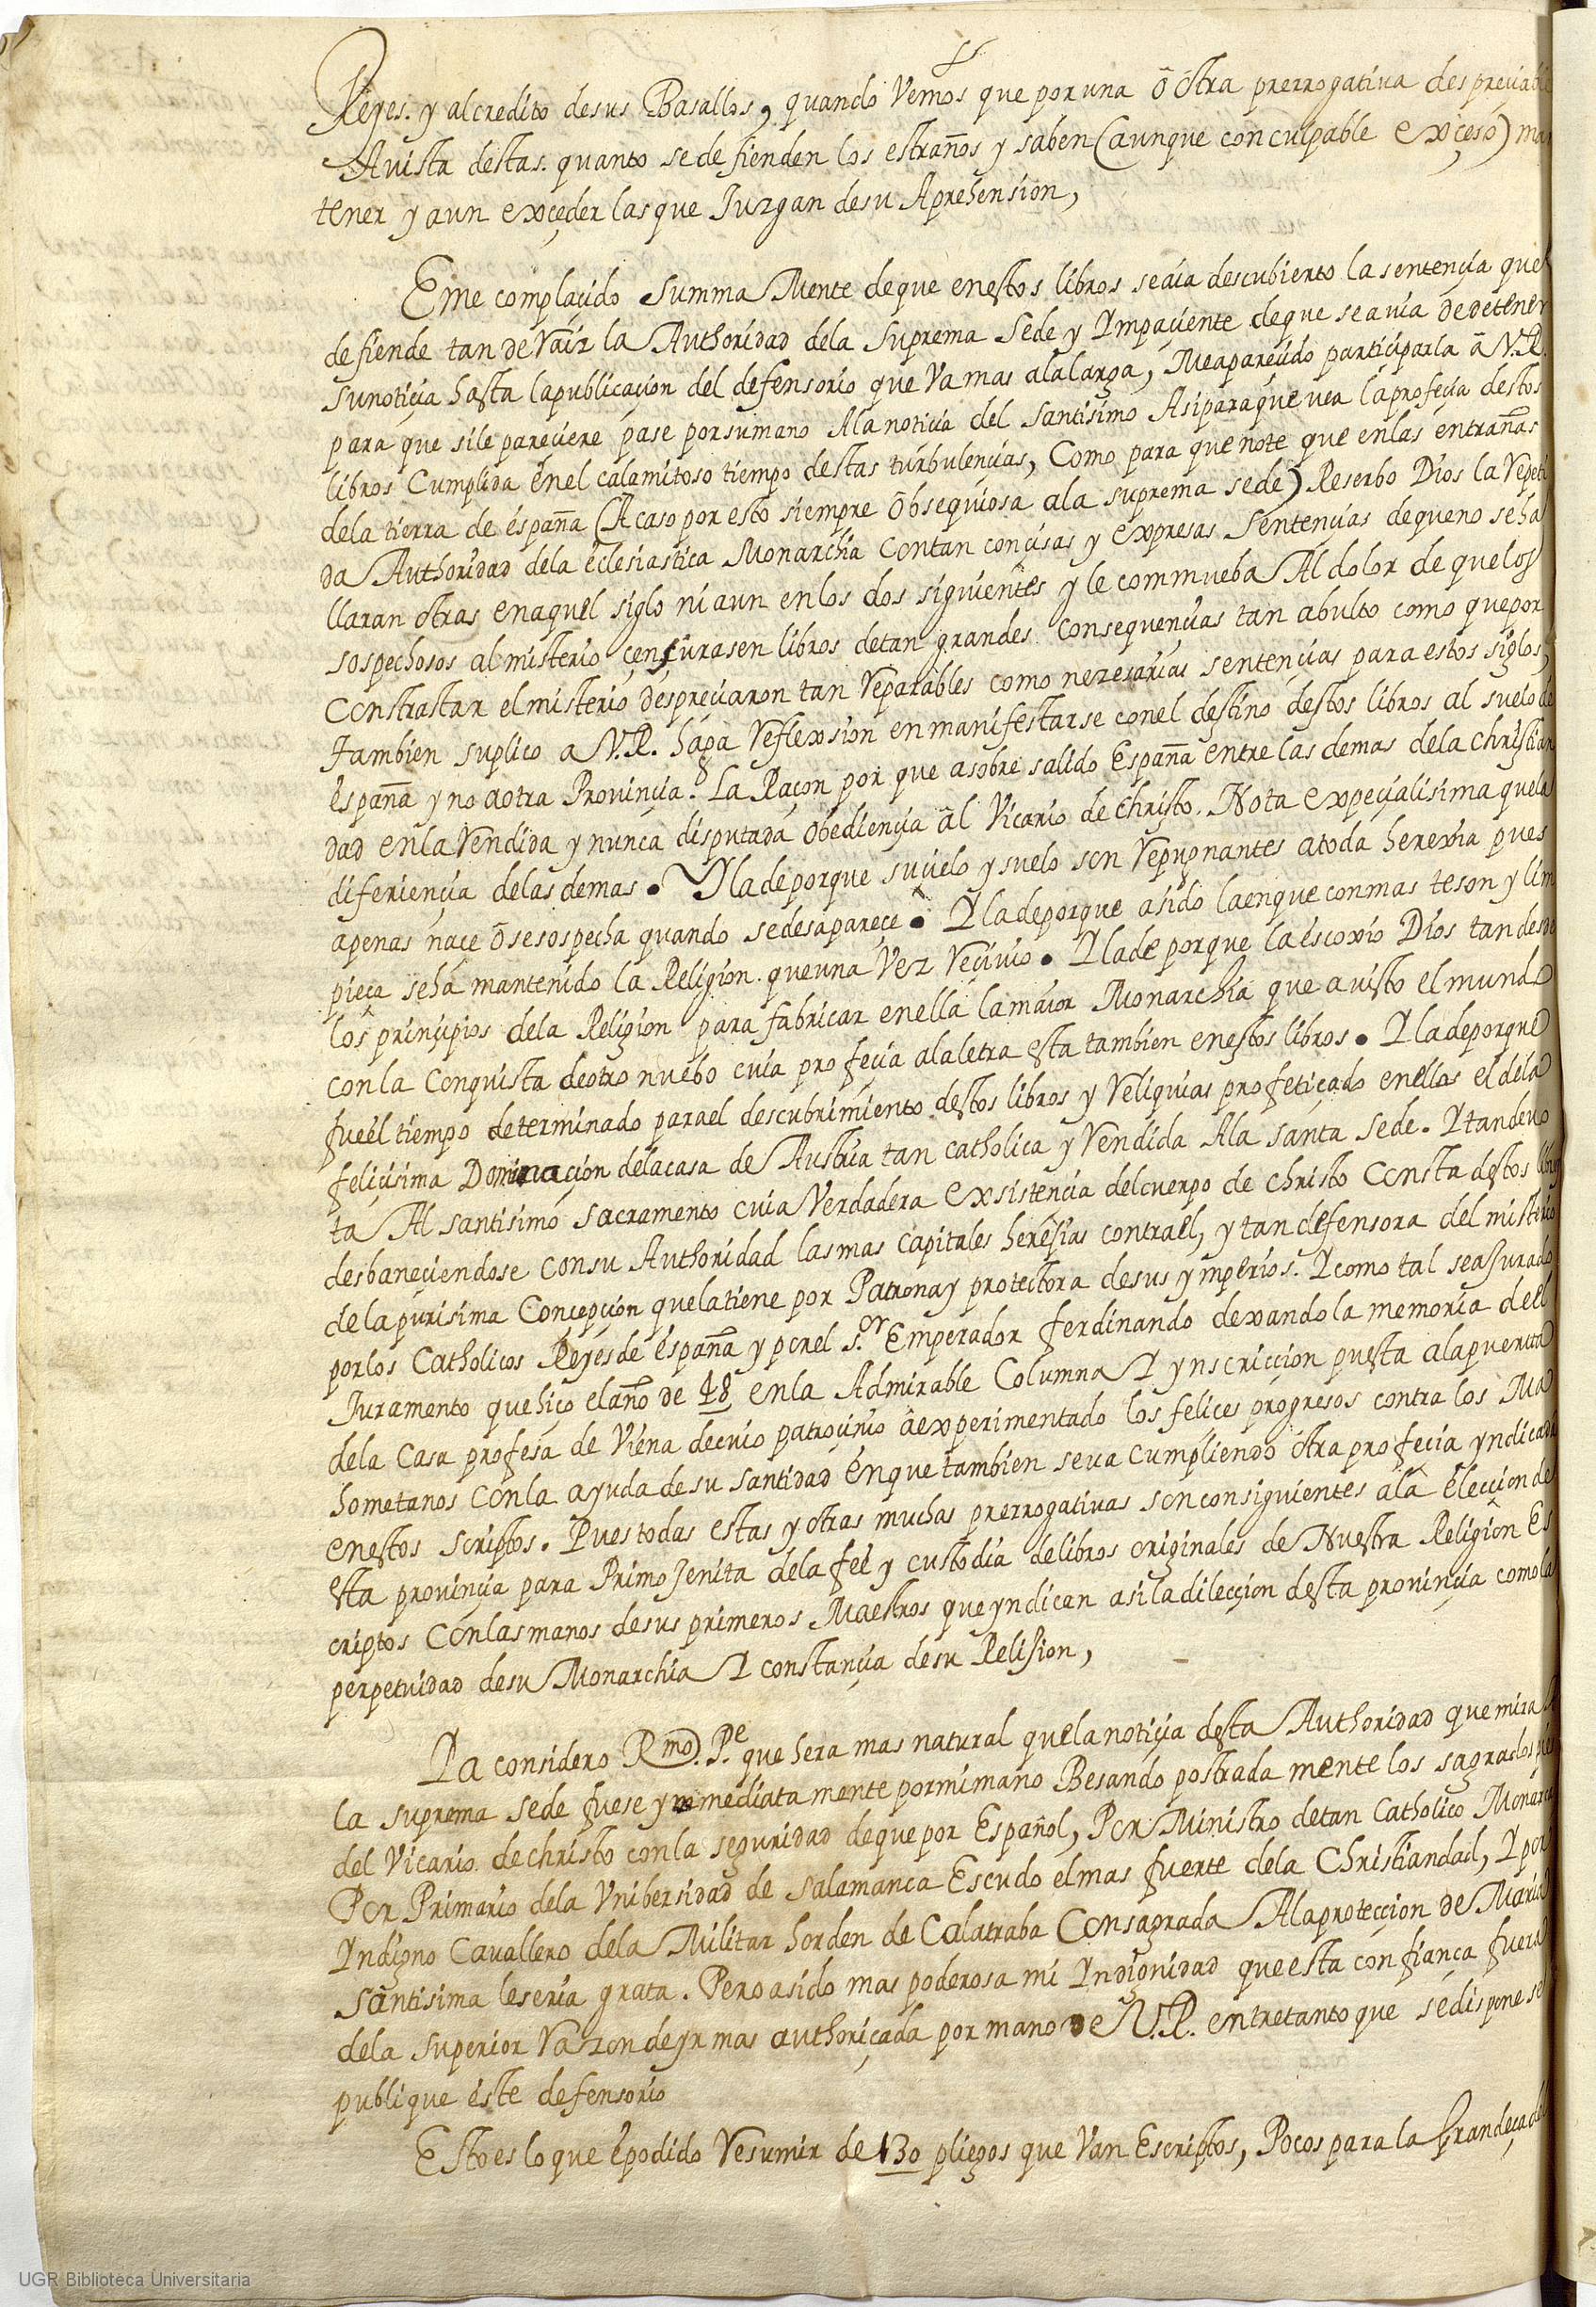 Reyes. y al credito de sus Basallos, quando Vemos que por una õ õtra prerrogativa despreciable
Avista destas. quanto se defienden los estraños y saben (aunque con culpable exçeso) man
tener y aun exçeder las que Juzgan de su Aprehension,
Eme complaçido Summa Mente de que en estos libros se avia descubierto la sentençia que
defiende tan de Vaiz la Authoridad dela Suprema Sede y Ympaçiente de que se avia de detener
su notiçia hasta la publicaçion del defensorio que Va mas ala larga, Me apareçido participarla ã V.R.
para que si le pareciere pase por su mano Ala notiçia del Santisimo Asi para que vea la profeçia destos
libros Cumplida ên el calamitoso tiempo destas turbulençias, Como para que note que en las entrañas
dela tierra de españa (Acaso por esto siempre õbsequiosa ala suprema sede) Reserbo Dios la Vepeti
da Authoridad dela eclesiastica Monarchia con tan concisas y expresas Sentencias de que no se ha
llaran otras en aquel siglo ni aun en los dos siguientes y le commueba Al dolor de que los
sospechosos al misterio çensurasen libros de tan grandes consequençias tan abulto como que por
Constrastar el misterio despreciaron tan Veparables como nezesarias sentençias para estos siglos,
tambien suplico a V.R. haga Veflexsion en manifestarse con el destino destos libros al suelo de
españa y no a otra Provinçia. La Raçon por que a sobre salido España entre las demas dela christian
dad en la Vendida y nunca disputada õbediençia ãl Vicario de christo. Nota expeçialisima que la
diferiençia delas demas. Y la de porque su çielo y suelo son Vepugnantes a toda herexia pues
apenas naçe õ se sospecha quando se desapareçe. Y la de porque a sido la en que con mas teson y lim
pieça se há mantenido la Religion que una Vez Veçivio. Y la de porque la escoxio Dios tan desde
los prinçipios dela Religion para fabricar en ella la maior Monarchia que a visto el mundo
con la Conquista de otro nuebo cuia profeçia ala letra esta tambien en estos libros. Y la de porque
fue el tiempo determinado para el descubrimiento destos libros y Veliquias profetiçado en ellos el dela
feliçisima Dominaçion dela casa de Austria tan catholica y Vendida Ala santa Sede. Y tan devo
ta Al santisimo sacramento cuia Verdadera exsistencia del cuerpo de christo Consta destos libros
desbaneçiendose con su Authoridad las mas capitales heresias contra el, y tan defensora del misterio
dela purisima Concepçion que la tiene por Patrona y protectora de sus ymperios. Y como tal se a Jurado
por los Catholicos Reyes de españa y por el s.or Emperador ferdinando dexando la memoria del
Juramento que hiço el año de 48 en la Admirable Columna Y ynscriccion puesta ala puerta
dela Casa profesa de Viena de cuio patroçinio ã experimentado los felices progresos contra los Ma
hometanos con la ayuda de su Santidad ên que tambien se va cumpliendo otra profecia yndicada
en estos scriptos. Pues todas estas y otras muchas prerrogativas son consiguientes a la eleccion de
esta provinçia para Primo Jenita dela feé y custodia de libros originales de Nuestra Religion Es
criptos con las manos de sus primeros Maestros que yndican asi la dilecçion desta provinçia como la
perpetuidad de su Monarchia Y constançia de su Relision,
Ya considero Rmo. Pe que hera mas natural que la notiçia desta Authoridad que mira A
la suprema sede fuese ynmediata mente por mi mano Besando postrada mente los sagrados pies
del Vicario de christo con la seguridad de que por Español, Por Ministro de tan Catholico Monarca
Por Primario dela Vnibersidad de Salamanca Escudo el mas fuerte dela Christiandad, Y por
Yndigno Cavallero dela Militar horden de Calatraba Consagrada Ala protecçion de Maria
Santisima le seria grata. Pero a sido mas poderosa mi Yndignidad que esta confiança fuera
dela superior Vazon de yr mas authoriçada por mano de V.R. entretanto que se dispone se
publique este defensorio
Esto es lo que êpodido Vesumir de 130 pliegos que Van Escriptos, Pocos para la Grandeça del
UGR Biblioteca Universitaria